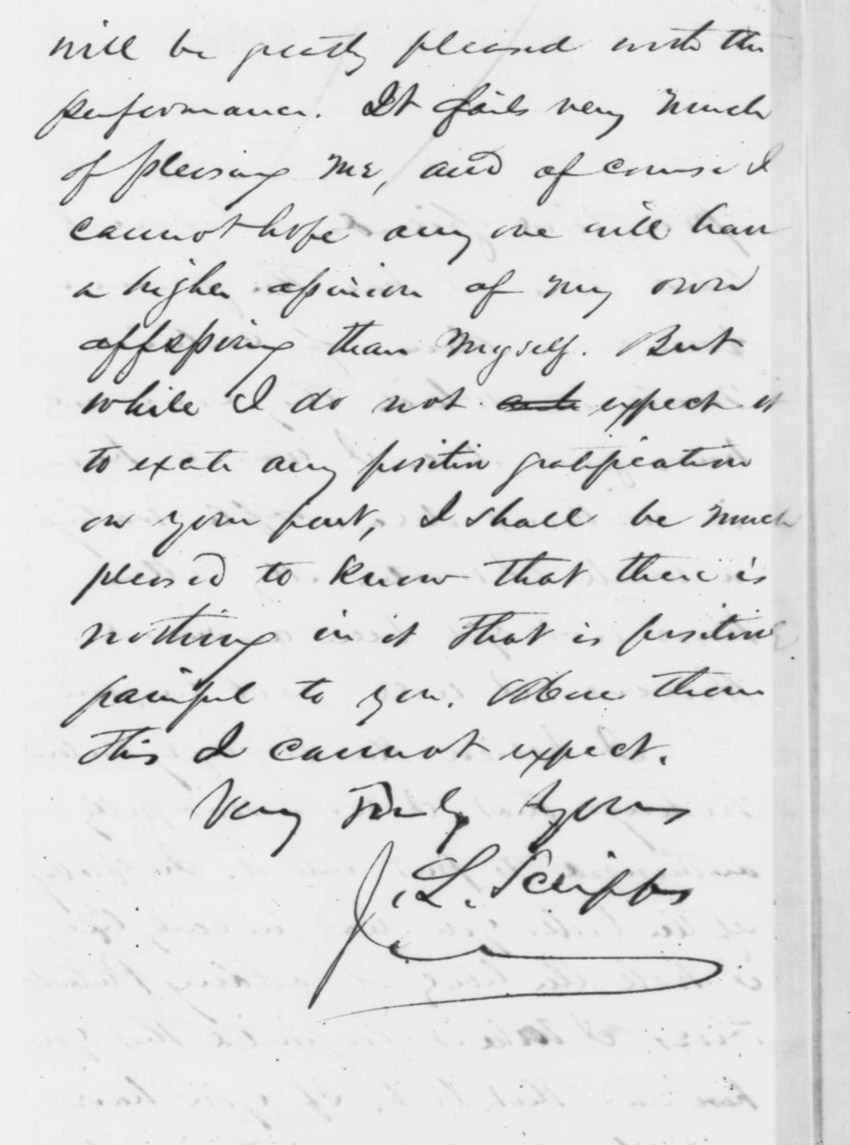 will be greatly pleased with the
performance. It fails very much
of pleasing me, and of course I
cannot hope any one will have
a higher opinion of my own
offspring than myself. But
while I do not expect it
to excite any positive gratification
on your part, I shall be much
pleased to know that there is
nothing in it that is positive
painful to you. More than
this I cannot expect.
Very Truly Yours
J. L. Scripps